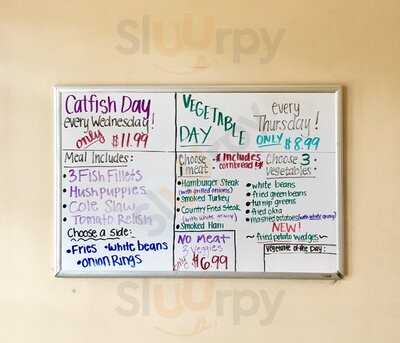 Sluurpy
Catfish Day
every Wednesday!
only $11.99
Meal Includes:
• 3 Fish Fillets
• Hushpuppies
• Cole Slaw
• Tomato Relish
Choose a side:
•Fries •white beans
•onion Rings
VEGETABLE
DAY
every
Thursday!
ONLY $8.99
Choose
1 meat:
* Includes
cornbread *
•Hamburger Steak
(with grilled onions)
•Smoked Turkey
•Country Fried Steak
(with white gravy)
•Smoked Ham
Choose 3
vegetables:
• white beans
• fried green beans
• turnip greens
• fried okra
• mashed potatoes (with white gravy)
NEW!
~ fried potato wedges ~
NO MEAT
2 veggies
only $6.99
Vegetable of the Day:
Sluurpy